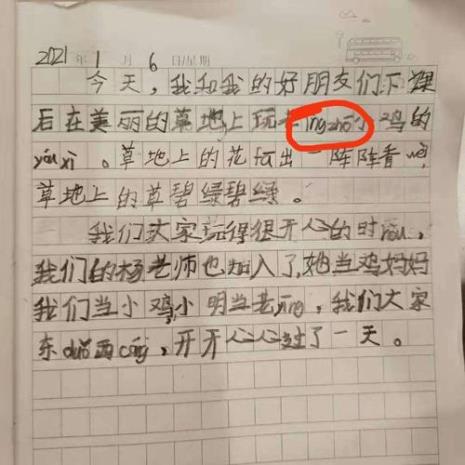 2021年1月6日/星期
今天,我和我的好朋友们下课
后在美丽的草地上玩老ing zhō小鸡的
yóu xì。草地上的花坛出一阵阵香wèi,
草地上的草碧绿碧绿。
我们大家玩得很开心的时hou,
我们的杨老师也加入了,她当鸡妈妈
我们当小鸡,小明当老yīng,我们大家
东duǒ西cáng,开开心心过了一天。